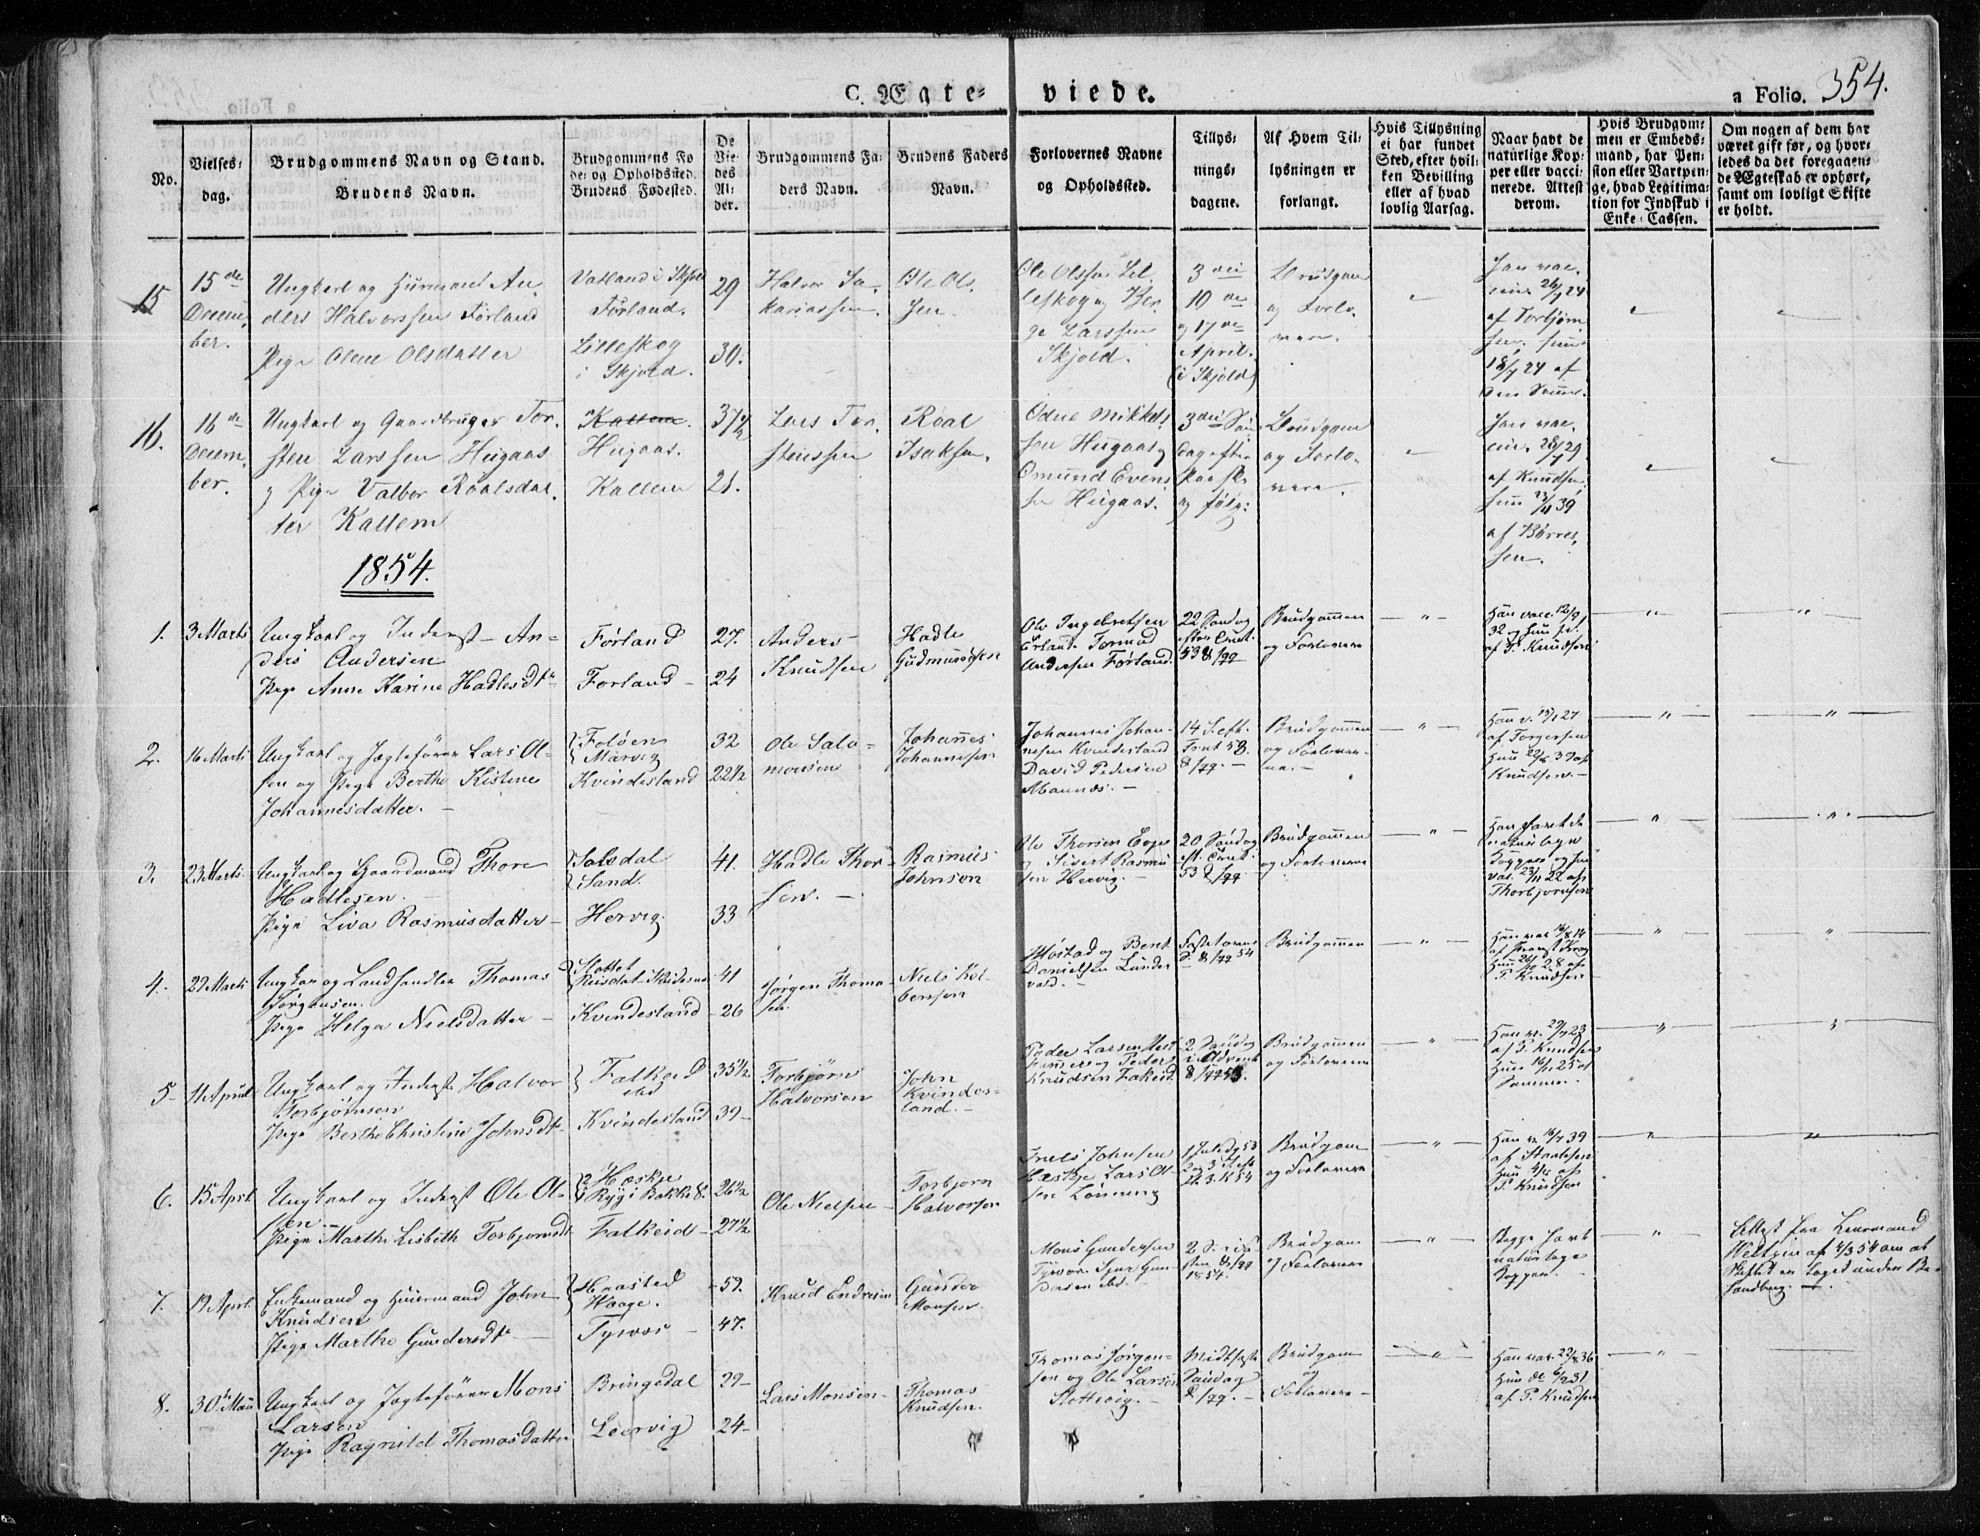 C. Ægte= viede.
a Folio. 354.
No.
Vielses=
dag.
Brudgommens Navn og Stand.
Brudens Navn.
Brudgommens Fø
de= og Opholdssted.
Brudens Fødested.
De
Vie=
des
Al=
der.
Brudgommens Fa=
ders Navn.
Brudens Faders
Navn.
Forlovernes Navne
og Opholdssted.
Tillys=
nings=
dagene.
Af Hvem Til=
lysningen er
forlangt.
Hvis Tillysning
ei har fundet
Sted, efter hvil=
ken Bevilling
eller af hvad
lovlig Aarsag.
Naar havt de
naturlige Kop=
per eller vacci=
nerede. Attest
derom.
Hvis Brudgom=
men er Embeds=
mand, har Pen=
sion eller Vartpen=
ge, hvad Legitima=
tion for Indskud i
Enke=Cassen.
Om nogen af dem har
været gift før, og hvor=
ledes da det foregaaen=
de Ægteskab er ophørt,
samt om lovligt Skifte
er holdt.
15
15de
Decem=
ber.
Ungkarl og Huusmand An=
ders Halvorssen Førland
Pige Olene Olsdatter
Vatland i Skjold
Førland.
Lilleskog
i Skjold.
29
30.
Halvor Za=
kariassen.
Ole Ols=
sen.
Ole Olssen Lil
leskog og Hel
ge Larssen
Skjold.
3die
10de
og 17de
April.
(i Skjold)
Brudgom
og Forlo=
vere.
Han vac=
cin. 26/9 24
af Torbjørn
sen. hun
18/7 24 af
16.
16de
Decem=
ber.
Ungkarl og Gaardbruger Tor=
sten Larssen Hugaas
og Pige Valbor Roalsdat=
ter Kallem
Kallem.
Hugaas.
Kallem
37½
21.
Lars Tor=
stenssen
Roal
Isaksen.
Odne Mikkels
sen Hugaas og
Omund Evens
sen Hugaas.
3die Søn
dag efter
Paaske
og følg:
Brudgom
og Forlo=
vere.
Han vac=
cin. 28/7 29
af Knudsen
hun 23/11 39
af Børres=
sen.
1854.
1.
3 Marts
Ungkarl og Inderst An=
ders Andersen
Pige Anne Karine Hadlesdtr
Førland
Førland
27.
24
Anders
Knudsen
Hadle
Gudmundsen
Ole Ingebretsen
Erland Tormod
Andersen Førland.
22 Søndag
efter Trnt.
53 8/99
Brudgommen
og Forlovere
Han vacc. 12/9
32 og hun
af P. Knudsen
2.
16 Marts
Ungkarl og Jægtefører Lars Ol=
sen og Pige Berthe Kistine
Johannesdatter.
Foløen
Mårvig
Kvindesland
32
22½
Ole Salo=
monsen
Johannes
Johannesen
Johannes Johan=
nesen Kvindesland
David Pedersen
Mannæs.
14 S. eft.
Trnt 53.
8/99.
Brudgommen
og Forlover=
ne.
Han v. 27
af Torgersen
Hun 22/6 37 af
Knudsen.
3.
23 Marts
Ungkarl og Gaardmand Thore
Hadlesen.
Pige Liva Rasmusdatter
Solsdal
Sand.
Hervig
41.
33
Hadle Thor
sen.
Rasmus
Johnson
Ole Thorsen
og Sivert Rasmu
sen Hervig.
20 Søndag
eft. Trnt.
53 8/99
Brudgommen
og Forlovere
Han havt de
naturlige
Kopper og hun
vac. 23/11 22 af
Thorbjørnsen
4.
29 Marts
Ungkar og Landhandler Thomas
Jørgensen.
Pige Helga Nielsdatter
Slottet
Kvindesland
41
26
Jørgen Thoma=
sen.
Niels Kol=
bensen
og Bent
Danielsen Lunde
vold.
Fastelavns
S. 8/99 54
Brudgommen
Han vac 16/8 14
af Provst Krog
Hun 26/10 28 af
P. Knudsen
5
11 April
Ungkarl og Inderst Halvor
Torbjørnsen
Pige Berthe Christine Johnsdtr
Falkeid
Kvindesland
35½
39
Torbjørn
Halvorsen
John
Kvindes=
land.
Peder Larsen
og Peder
Knudsen Fakeid.
2 Søndag
i Advent
8/99 53.
Brudgommen
og Forlovere
Han v. 29/7 23
af P. Knudsen
Hun 16/1 25 af
Sommer.
6.
15 April
Ungkarl og Inderst Ole Ol=
sen
Pige Marthe Lisbeth Torbjørnsdt
Hæskje
Falkeid
26½
27½
Ole Nielsen
Torbjørn
Halvorsen
Johnsen
Hæskje Lars Ol
sen Lønning
1 Juledg 53
Brudgom
og Forlovere
Han v. 16/7 39
af Staalesen
Hun af
P. Knudsen
7.
19 April
Enkemand og Huusmand John
Knudsen
Pige Marthe Gundersdtr
Haasted
Waage.
Tysvær
52.
47.
Knud Endresen
Gunder
Monsen.
Mons Gundersen
Tysvær
2 S. i
8/99
1854.
Brudgom
og Forlovere
Begge havt
naturlige
Kopper.
Attest fra Lensmand
af 4/3 54 om at
Skiftet er taget under Be=
handling.
8.
30te Mai
Ungkarl og Jægtefører Mons
Larsen
Pige Ragnild Thomasdatter
Bringedal
Leervig
29
24
Lars Monsen
Thomas
Knudsen.
Thomas Jørgen=
sen og Ole Larsen
Slottevig.
Midtfaste
Søndag
8/99.
Brudgom
og
Forlovere
Han vac. 22/8 36
Hun de 6/9 31
af P. Knudsen